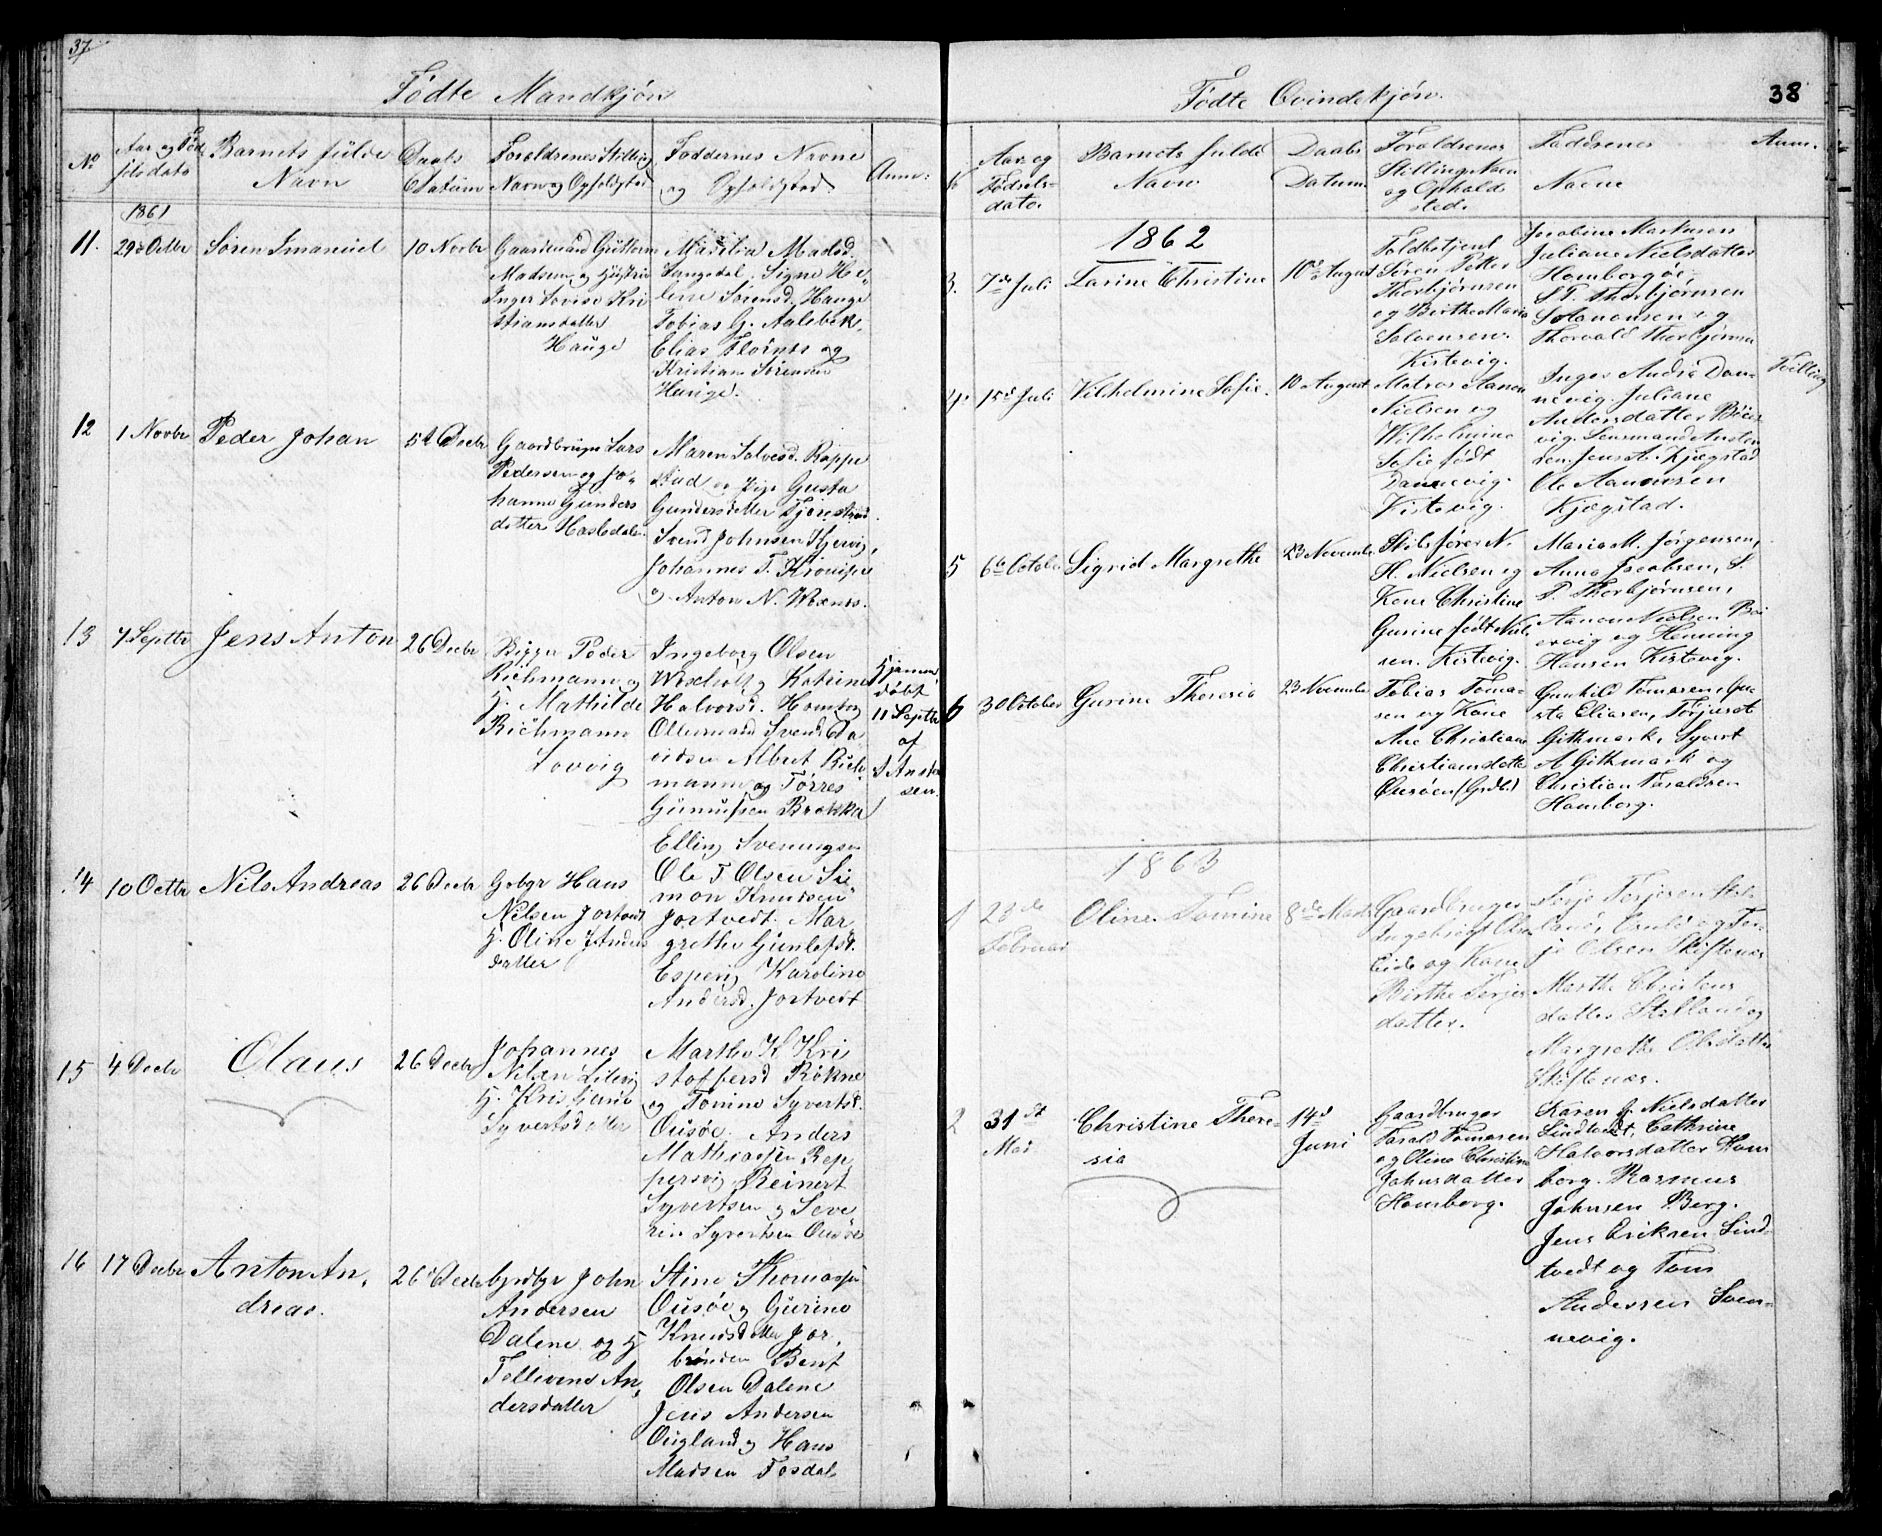 37
Fødte Mandkjøn
No
Aar og Fød
selsdato
Barnets fulde
Navn
Daabs
Datum
Forældrenes Stilling
Navn og Opholdsted
Faddernes Navne
og Opholdsted
Anm:
1861
11. 29de Octbr Søren Imanuel 10 Novbr
Gaardmand Guttorm
Madsen og Hustru
Inger Lovise Kri
stiansdatter
Hauge
Langedal. Signe He
lene Sørensd. Hauge
Tobias G. Aalsbek
Elias Flørnes og
Kristian Sørensen
Hauge.
12 1 Novbr Peder Johan 5t Decbr
Gaardbruger Lars
Pedersen og Jo
hanne Gunders
datter Hasledalen
Maren Salvesd. Roppe
stad og Pige Gusta
Gundersdatter Tjorestrand
Svend Johnsen Kjervig,
Johannes T.
og Anton N.
13 7 Septbr Jens Anton 26 Decbr
Peder
Richmann og
H. Mathilde
Richmann
Lovvig
Ingeborg Olsen
og Katrine
Halvorsd. Homborg
Svend Da
vidsen Albert Rich
mann og Tørres
Gunnufsen Brække
Hjemme
døbt
11 Septbr
af
J Austen
sen.
14 10 Octbr Nils Andreas 26 Decbr
Gbgr Hans
Nilsen Jortvedt
H. Oline J Anders
datter
Elling Sveningsen
Ole T Olsen Si
mon Knudsen
Jortvedt. Mar
grethe Gunlefsd.
Espevig Karoline
Andersd. Jortvedt
15 4 Decbr Olaus 26 Decbr
Johannes
Nilsen Lilevig
H. Kristiane
Syvertsdatter
Marthe K Kri
stoffersd Røkne
og Tomine Syvertsd.
Ousøe. Anders
Mathiassen Rep
pervig Reinert
Syvertsen og Seve
rin Syvertsen Ousøe
16 17 Decbr Anton An,
dreas.
26d Decbr
Gbgr John
Andersen
Dalene og H
Tellevine An,
dersdatter
Stine Thomassen
Ousøe og Gurine
Knudsdatter Jor,
brønden Bent
Olsen Dalene
Jens Andersen
Ougland og Hans
Madsen Tosdal
38
Fødte Qvindekjøn.
No
Aar og
Fødsels-
dato.
Barnets fulde
Navn
Daabs
Datum.
Forældrenes
Stilling Navn
og Ophold
sted.
Faddernes
Navne
Anm.
1862
3. 7de Juli Larine Christine 10de August
Toldbetjent
Søren Petter
Thorbjørnsen
og Birthe Marie
Salvensen.
Kistevig.
Jacobine Markusen
Juliane Nielsdatter
Homborgøe.
S. P. Thorbjørnsen
og
Thorvald Thorbjørnsen
4. 15de Juli Vilhelmine Sofie. 10 August
Matros Aanon
Nielsen og
Wilhelmine
Sofie født
Dannevig.
Kistevig.
Inger Andrea Dan-
nevig. Juliane
Andersdatter Bøier
vig. Lensmand Austen
sen. Jens A. Kjægstad
Ole Aanonsen
Kjægstad.
Tvilling
5 6te October Sigrid Margrethe 23 November
Skibsfører N.
H. Nielsen og
Kone Christine
Gurine født Niel
sen. Kistevig.
Maria M. Jørgensen,
Anna Jacobsen, S.
P. Thorbjørnsen,
Aanon Nielsen Bøi
ervig og Henning
Hansen Kistevig.
6 30 October Gurine Theresia 23 November
Tobias Toma-
sen og Kone
Ane Christiane
Christiansdatter
Ousøen (Grdb.)
Gunhild Tomasen, Gu
sta Eliasen, Terjus
Githmark, Syvert
A Githmark og
Christian Taraldsen
Homborg.
1863
1 23de
Februar
Oline Tomine 8de Marts
Gaardbruger
Ingebrigt Olsen
Eide og Kone
Birthe Terjes
datter.
Terje Terjesen Stal
land, og Ter-
je Olsen Skiftenæs
Marthe Christens
datter Stalland og
Margrethe Olsdatter
Skiftenæs.
2 31st
Mai
Christine There-
sia
14d
Juni
Gaardbruger
Tarald Tomasen
og Oline Christine
Johnsdatter
Homborg.
Karen G. Nielsdatter
Lindtvedt, Cathrine
Halvorsdatter Hom
borg. Rasmus
Johnsen Berg.
Jens Eriksen Lind-
tvedt og Tom
Andersen Sven-
nevig.